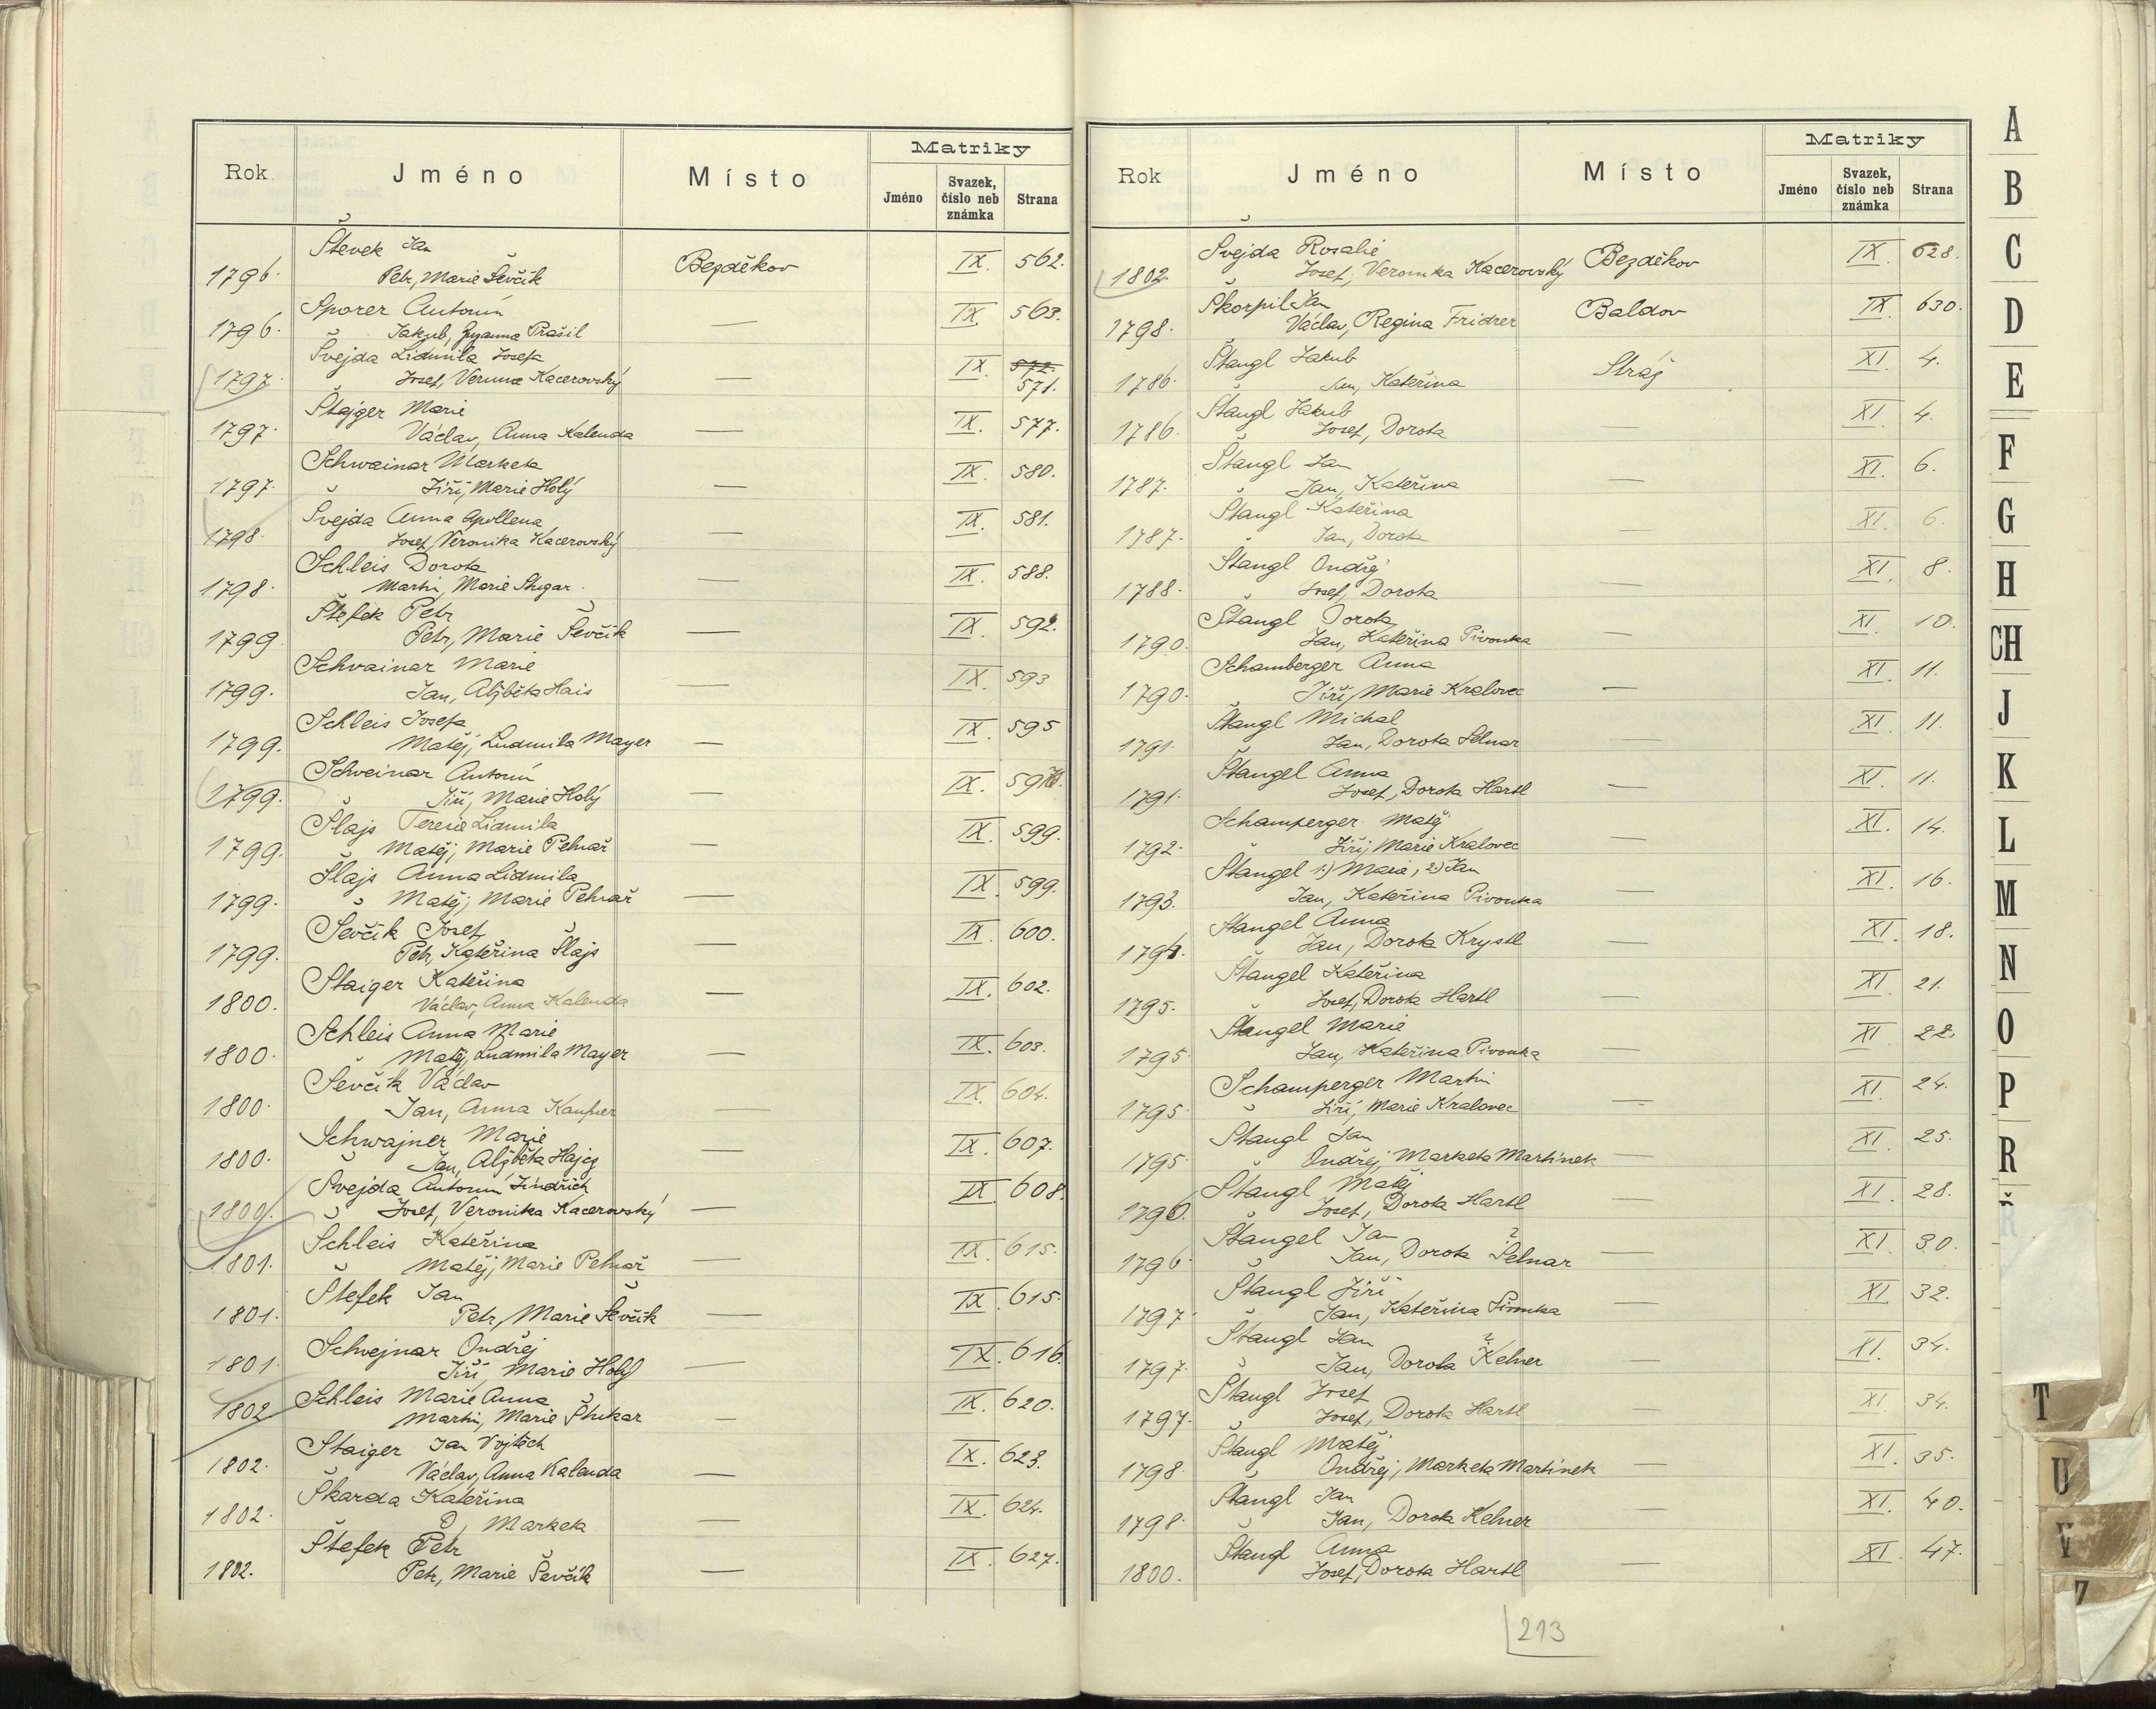 Rok Jméno Místo Matriky
Jméno Svazek, číslo neb známka Strana
Števek Jan
1796. Petr, Marie Ševčík Bezděkov IX. 562.
Sporer Antonín
1796. Jakub, Zuzanna Prašil — IX. 563.
Švejda Lidmila Josefa
1797. Josef, Veruna Kacerovský — IX. 572. 571.
Štajger Marie
1797. Václav, Anna Kalenda — IX. 577.
Schwainar Marketa
1797. Jiří, Marie Holý — IX. 580.
Švejda Anna Apollena
1798. Josef, Veronika Kacerovský — IX. 581.
Schleis Dorota
1798. Martin, Marie — IX. 588.
Štefek Petr
1799. Petr, Marie Ševčík — IX. 592.
Schvainar Marie
1799. Jan, Alžběta Hais — IX. 593
Schleis Josefa
1799. Matěj, Ludmila Mayer — IX. 595
Schweinar Antonín
1799. Jiří, Marie Holý — IX.
Šlajs Terezie Lidmila
1799. Matěj, Marie Pelnař — IX. 599.
Šlajs Anna Lidmila
1799. Matěj, Marie Pelnař — IX. 599.
Ševčík Josef
1799. Petr, Kateřina Šlajs — IX. 600.
Staiger Kateřina
1800. Václav, Anna Kalenda — IX. 602.
Schleis Anna Marie
1800. Matěj, Ludmila Mayer — IX. 603.
Ševčík Václav
1800. Jan, Anna — IX. 604.
Schwajner Marie
1800. Jan, Alžběta Hajes — IX. 607.
Švejda Antonín Jindřich
1800. Josef, Veronika Kacerovský — IX. 608.
Schleis Kateřina
1801. Matěj, Marie Pelnař — IX. 615.
Štefek Jan
1801. Petr, Marie Ševčík — IX. 615.
Schvejnar Ondřej
1801. Jiří, Marie Holý — IX. 616.
Schleis Marie Anna
1802. Martin, Marie — IX. 620.
Staiger Jan Vojtěch
1802. Václav, Anna Kalenda — IX. 623.
Škarda Kateřina
1802. O, Marketa — IX. 624.
Štefek Petr
1802. Petr, Marie Ševčík — IX. 627.
Rok Jméno Místo Matriky
Jméno Svazek, číslo neb známka Strana
Švejda Rosalie
1802 Josef, Veronika Kacerovský Bezděkov IX. 628.
Škorpil Jan
1798. Václav, Regina Fridrer Baldov IX 630.
Štangl Jakub
1786. Jan, Kateřina Stráž XI. 4.
Štangl Jakub
1786. Josef, Dorota — XI. 4.
Štangl Jan
1787. Jan, Kateřina — XI. 6.
Štangl Kateřina
1787. Jan, Dorota — XI. 6.
Štangl Ondřej
1788. Josef, Dorota — XI. 8.
Štangl Dorota
1790. Jan, Kateřina Pivonka — XI. 10.
Schamberger Anna
1790. Jiří, Marie Kralovec — XI. 11.
Štangl Michal
1791. Jan, Dorota Selnar — XI. 11.
Štangel Anna
1791. Josef, Dorota Hartl — XI. 11.
Schamperger Matěj
1792. Jiří, Marie Kralovec — XI. 14.
Štangel 1.) Marie, 2.) Jan
1793. Jan, Kateřina Pivonka — XI. 16.
Stangel Anna
Jan, Dorota Krystl — XI. 18.
Štangel Kateřina
1795. Josef, Dorota Hartl — XI. 21.
Stangel Marie
1795. Jan, Kateřina Pivonka — XI. 22.
Schamperger Martin
1795. Jiří, Marie Kralovec — XI. 24.
Štangl Jan
1795. Ondřej, Marketa Martinek — XI. 25.
Štangl Matěj
1796. Josef, Dorota Hartl — XI. 28.
Štangel Jan
1796. Jan, Dorota Selnar ? — XI. 30.
Štangl Jiří
1797. Jan, Kateřina — XI. 32.
Štangl Jan
1797. Jan, Dorota Kelner ? — XI. 34.
Štangl Josef
1797. Josef, Dorota Hartl — XI. 34.
Štangl Matěj
1798. Ondřej, Marketa Martinek — XI. 35.
Štangl Jan
1798. Jan, Dorota Kelner — XI. 40.
Štangl Anna
1800. Josef, Dorota Hartl — XI. 47.
213
A
B
C
D
E
F
G
H
CH
J
K
L
M
N
O
P
R
Ř
T
U
V
Z